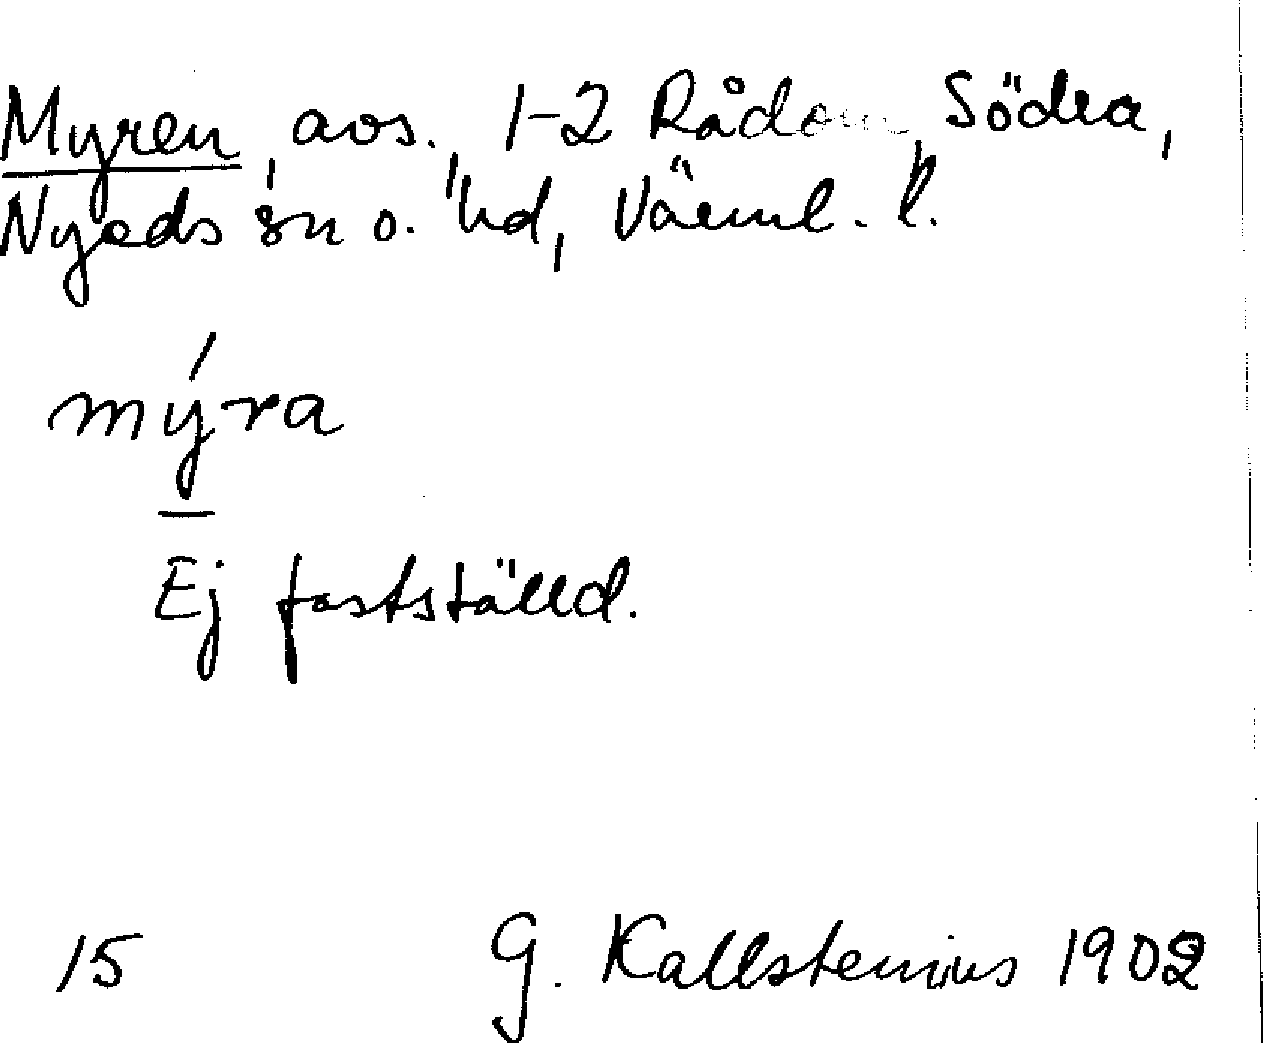 Myren, avs., 1-2 Rådom, Södra,
Nyeds sn o. hd, Värml. l.
mýra
Ej fastställd.
15 G. Kallstenius 1902